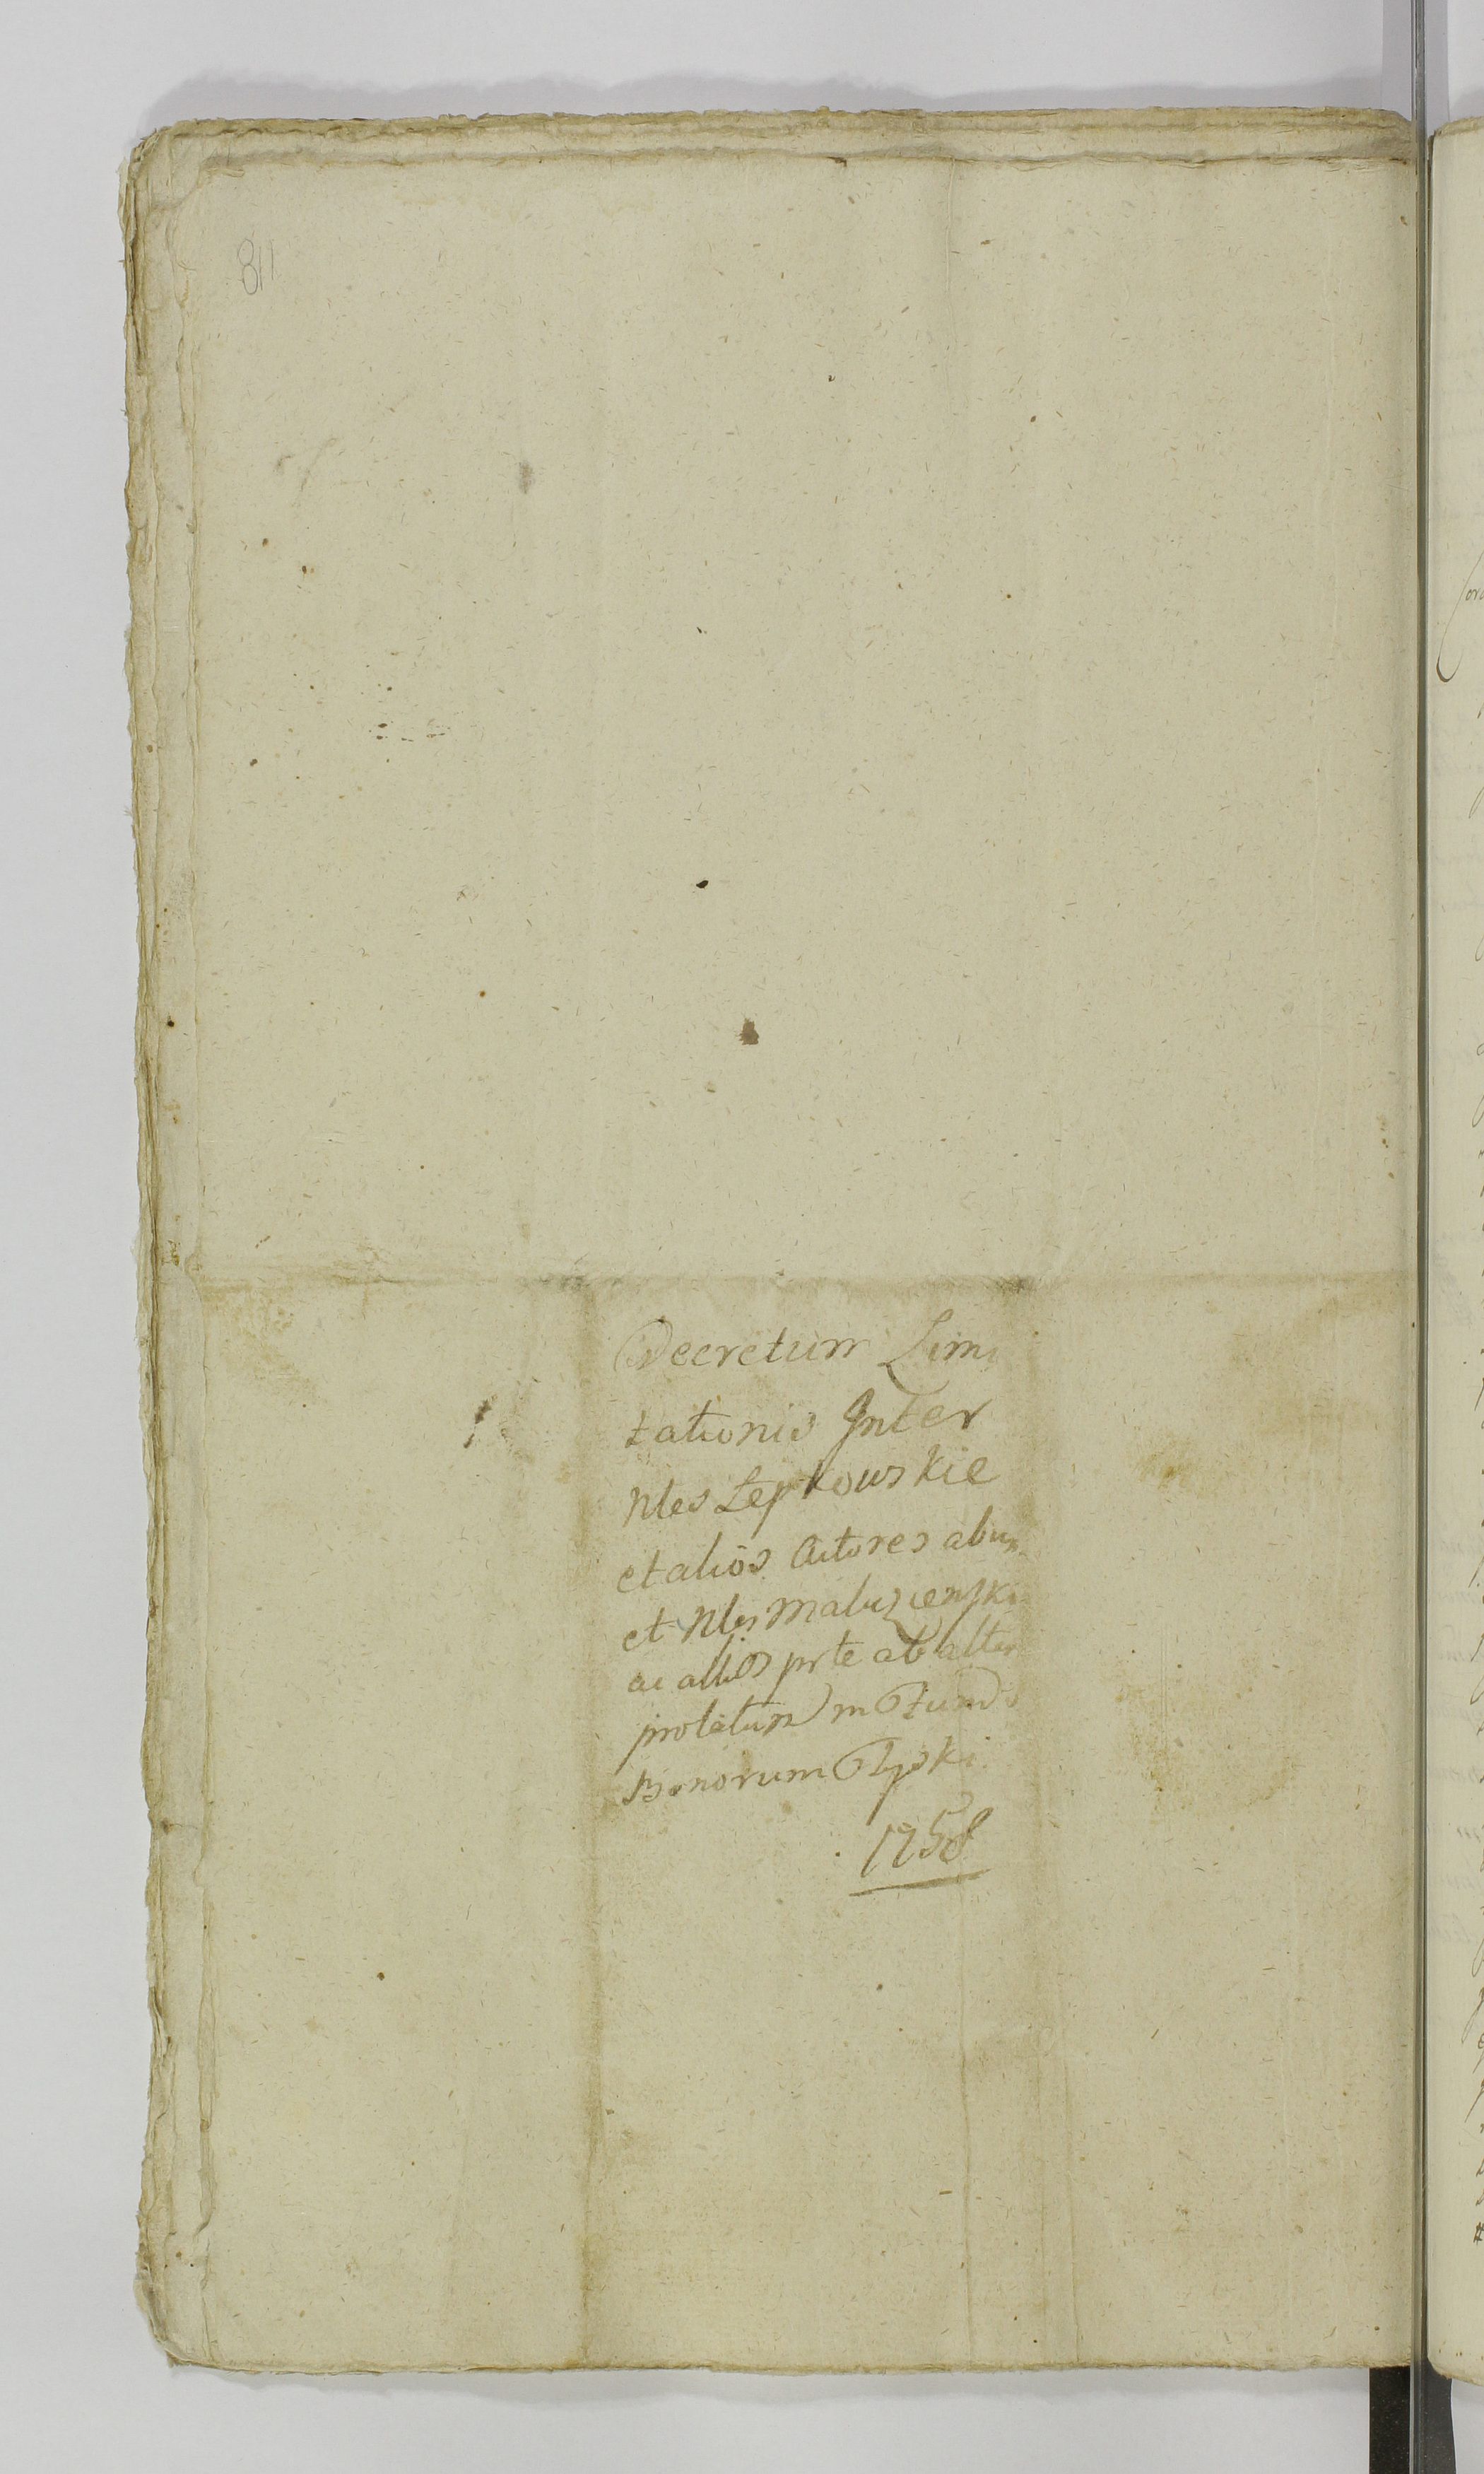 811
Decretum Limi
tationis Inter
Nles Łepkowskie
et alios Actores ab un
et Nles Maluzienski
ac alios prte ab alter
prolatum in Fundo
Bonorum Łyski
1758